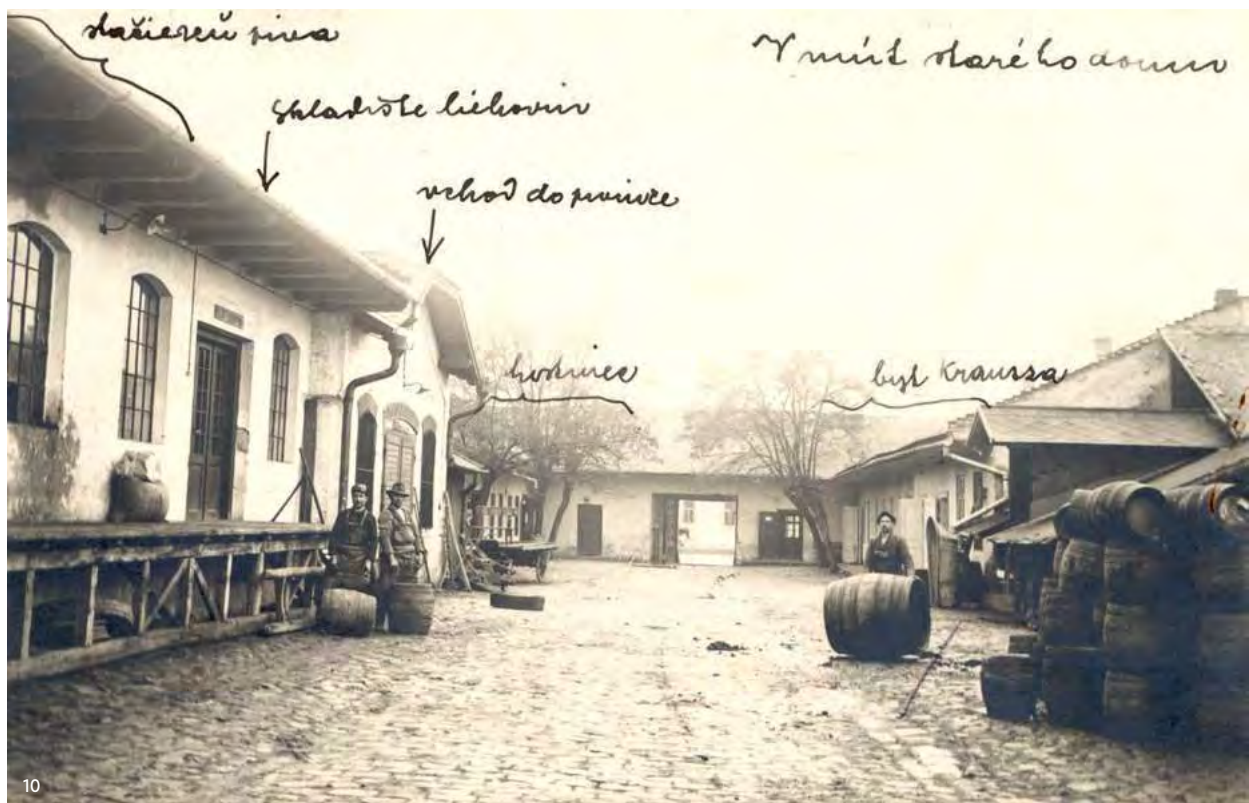 stačiereň piva
Vnút starého domu
skladište liehovin
vchod do pivnice
hostinec
byt Krausza
10